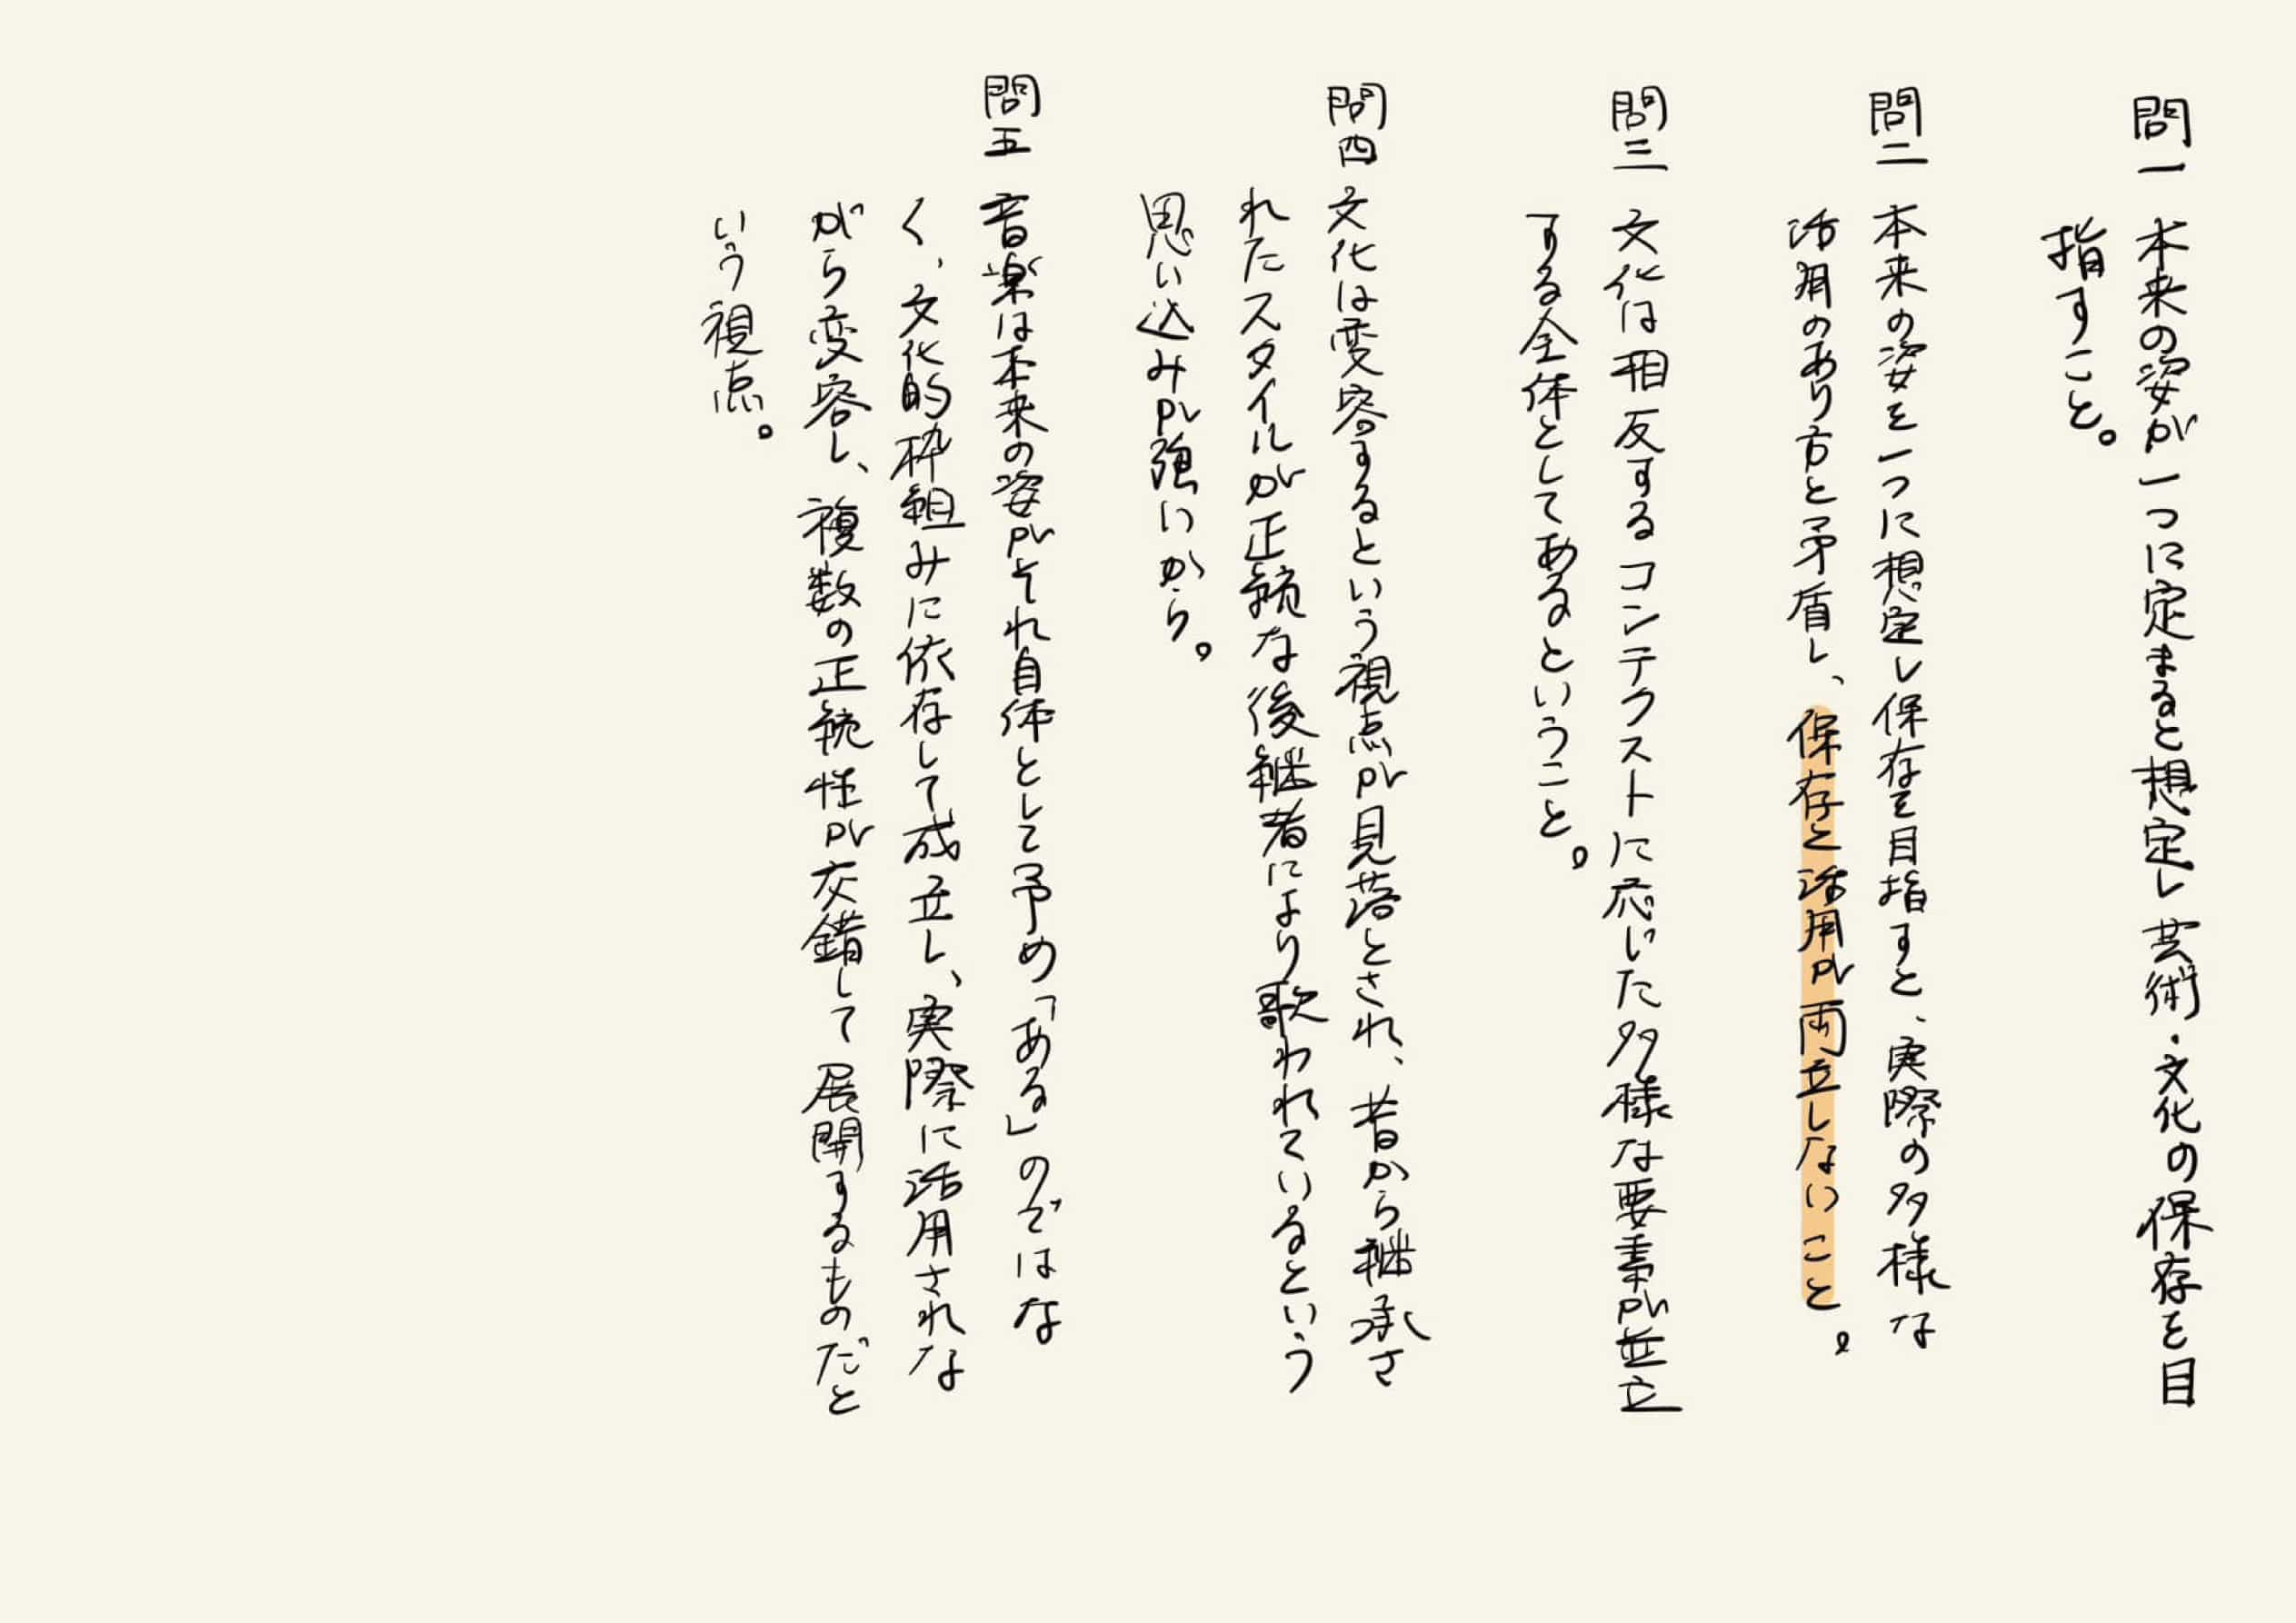 問一 本来の姿が一つに定まると想定し芸術・文化の保存を目
指すこと。
問二 本来の姿を一つに想定し保存を目指すと、実際の多様な
活用のあり方と矛盾し、保存と活用が両立しないこと。
問三 文化は相反するコンテクストに応じた多様な要素が並立
する全体としてあるということ。
問四 文化は変容するという視点が見落とされ、昔から継承さ
れたスタイルが正統な後継者により歌われているという
思い込みが強いから。
問五 音楽は本来の姿がそれ自体として予め「ある」のではな
く、文化的枠組みに依存して成立し、実際に活用されな
がら変容し、複数の正統性が交錯して展開するものだと
いう視点。